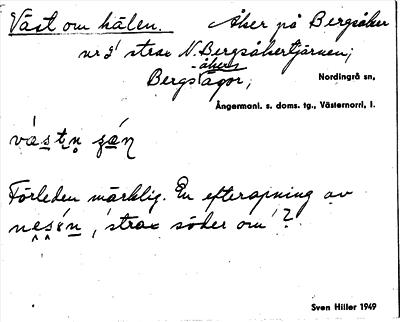 Väst om hålen. Åker på Bergsåker
nr 3 strax N. Bergsåkertjärnen;
-åkers
Bergs ägor; Nordingrå sn,
Ångermanl. s. doms. tg., Västernorrl. l.
Förleden märklig. En efterapning av
strax söder om ?
Sven Hiller 1949